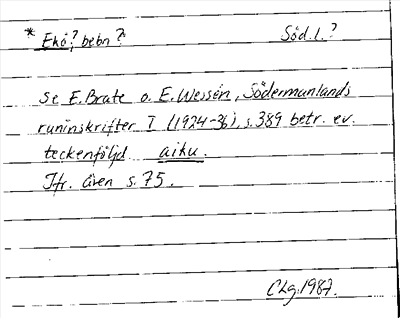 * Ekö?, bebn? Söd.l.?
Se E. Brate o. E. Wessén, Södermanlands
runinskrifter I (1924-36), s. 389 betr. ev.
teckenföljd aiku.
Jfr. även s. 75.
CLg. 1987.